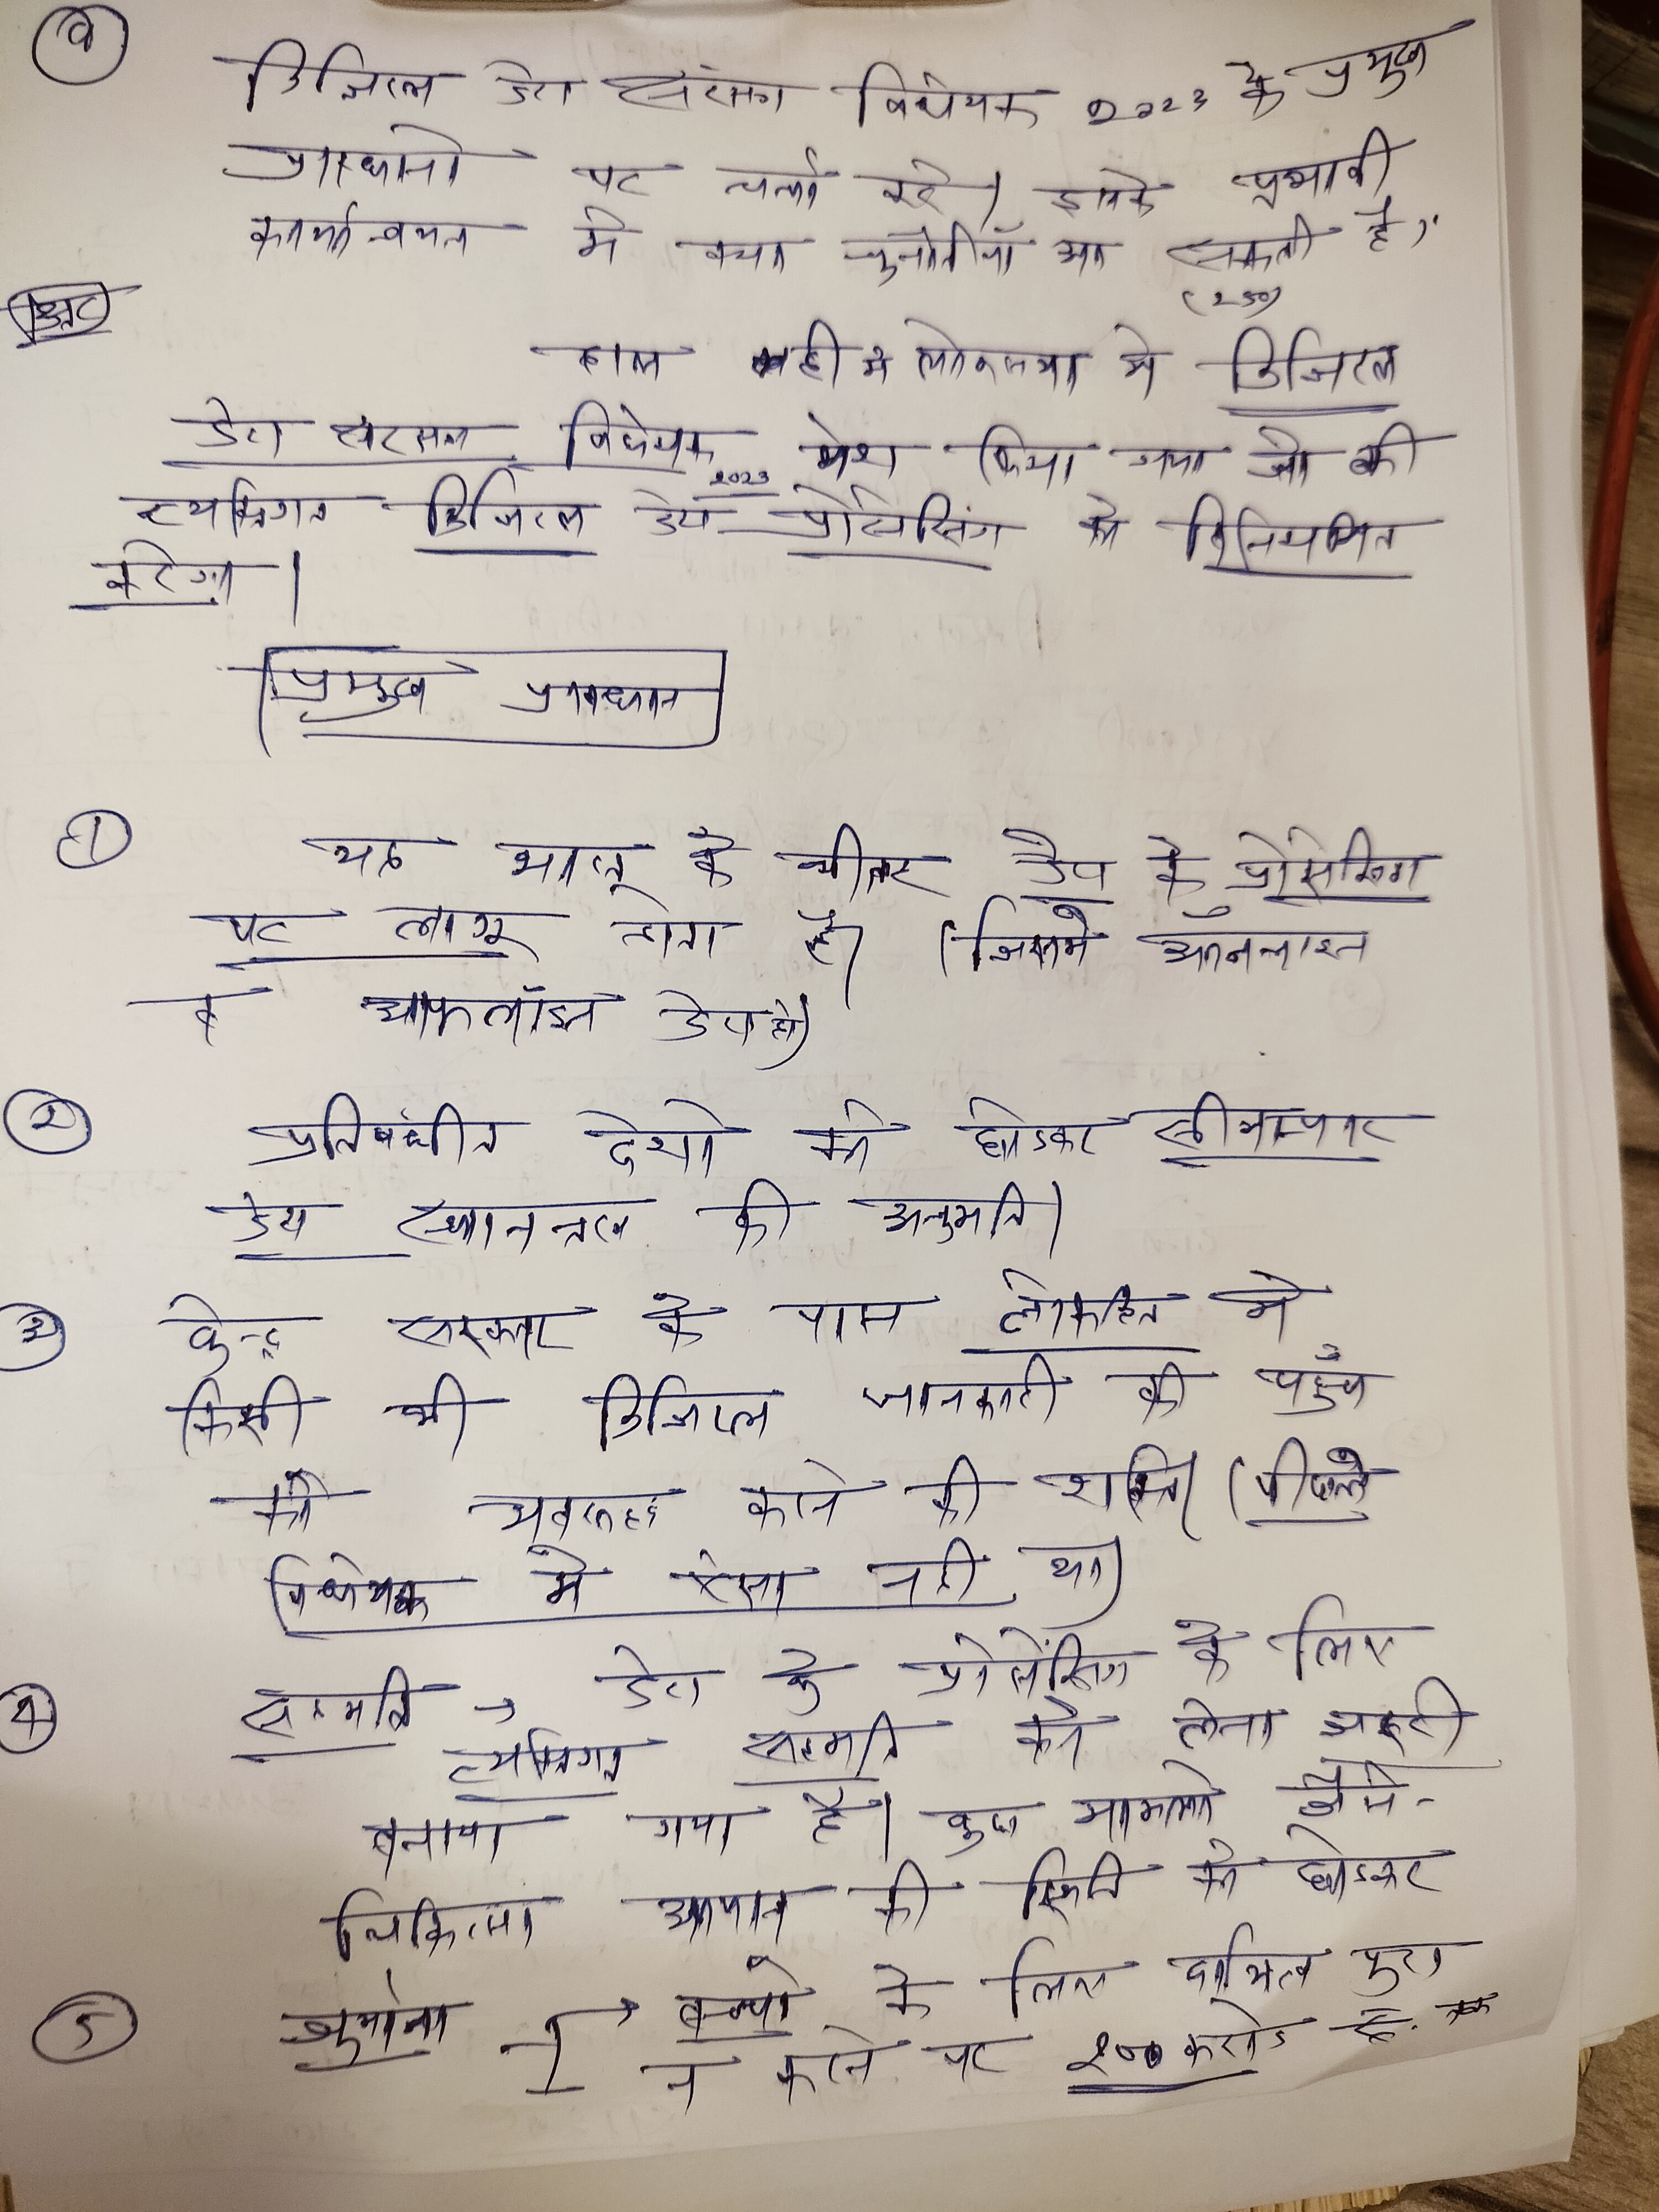 डिजिटल डेटा संरक्षण विधेयक 2023 के प्रमुख
प्रावधानों पर चर्चा करें। इसके प्रभावी
कार्यान्वयन में क्या चुनौतियाँ आ सकती है।
(250)
उत्तर
हाल ही में लोकसभा में डिजिटल
डेटा संरक्षण विधेयक 2023 पेश किया गया जो की
व्यक्तिगत डिजिटल डेटा प्रोसेसिंग को विनियमित
करेगा।
प्रमुख प्रावधान
1 यह भारत के भीतर डेटा के प्रोसेसिंग
पर लागू होता है। (जिसमे ऑनलाइन
व ऑफलाइन डेटा हो)
2 प्रतिबंधीत देशो को छोडकर सीमापार
डेटा स्थानन्तरण की अनुमति।
3 केन्द्र सरकार के पास लोकहित मे
किसी भी डिजिटल जानकारी की पहुँच
को अवरूद्ध करने की शक्ति। (पीछले
विधेयक मे ऐसा नही था)
4 सहमति → डेटा के प्रोसेसिंग के लिए
व्यक्तिगत सहमति को लेना जरूरी
बनाया गया है। कुछ मामलो जैसे-
चिकित्सा आपात की स्थिति को छोडकर
5 जुर्माना → बच्चो के लिए दायित्व पुरा
न करने पर 200 करोड रू. तक